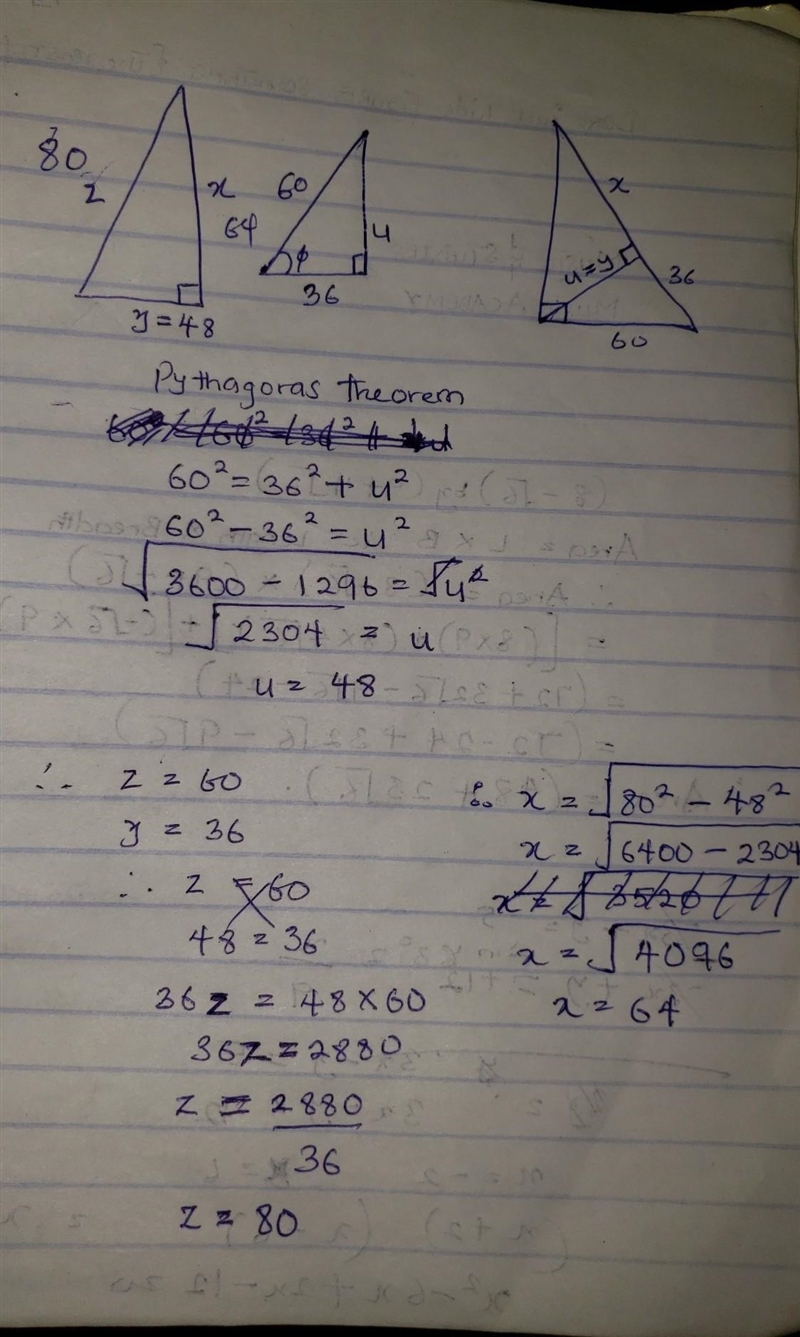 80
z
x
64
y = 48
60
u
ϕ
36
x
u = y
36
60
Pythagoras theorem
60² = 36² + u²
60² − 36² = u²
√3600 − 1296 = √u²
√2304 = u
u = 48
∴ z = 60
y = 36
∴ z = 60
48 = 36
36z = 48 × 60
36z = 2880
z = 2880
36
z = 80
∴ x = √80² − 48²
x = √6400 − 2304
x = √4096
x = 64